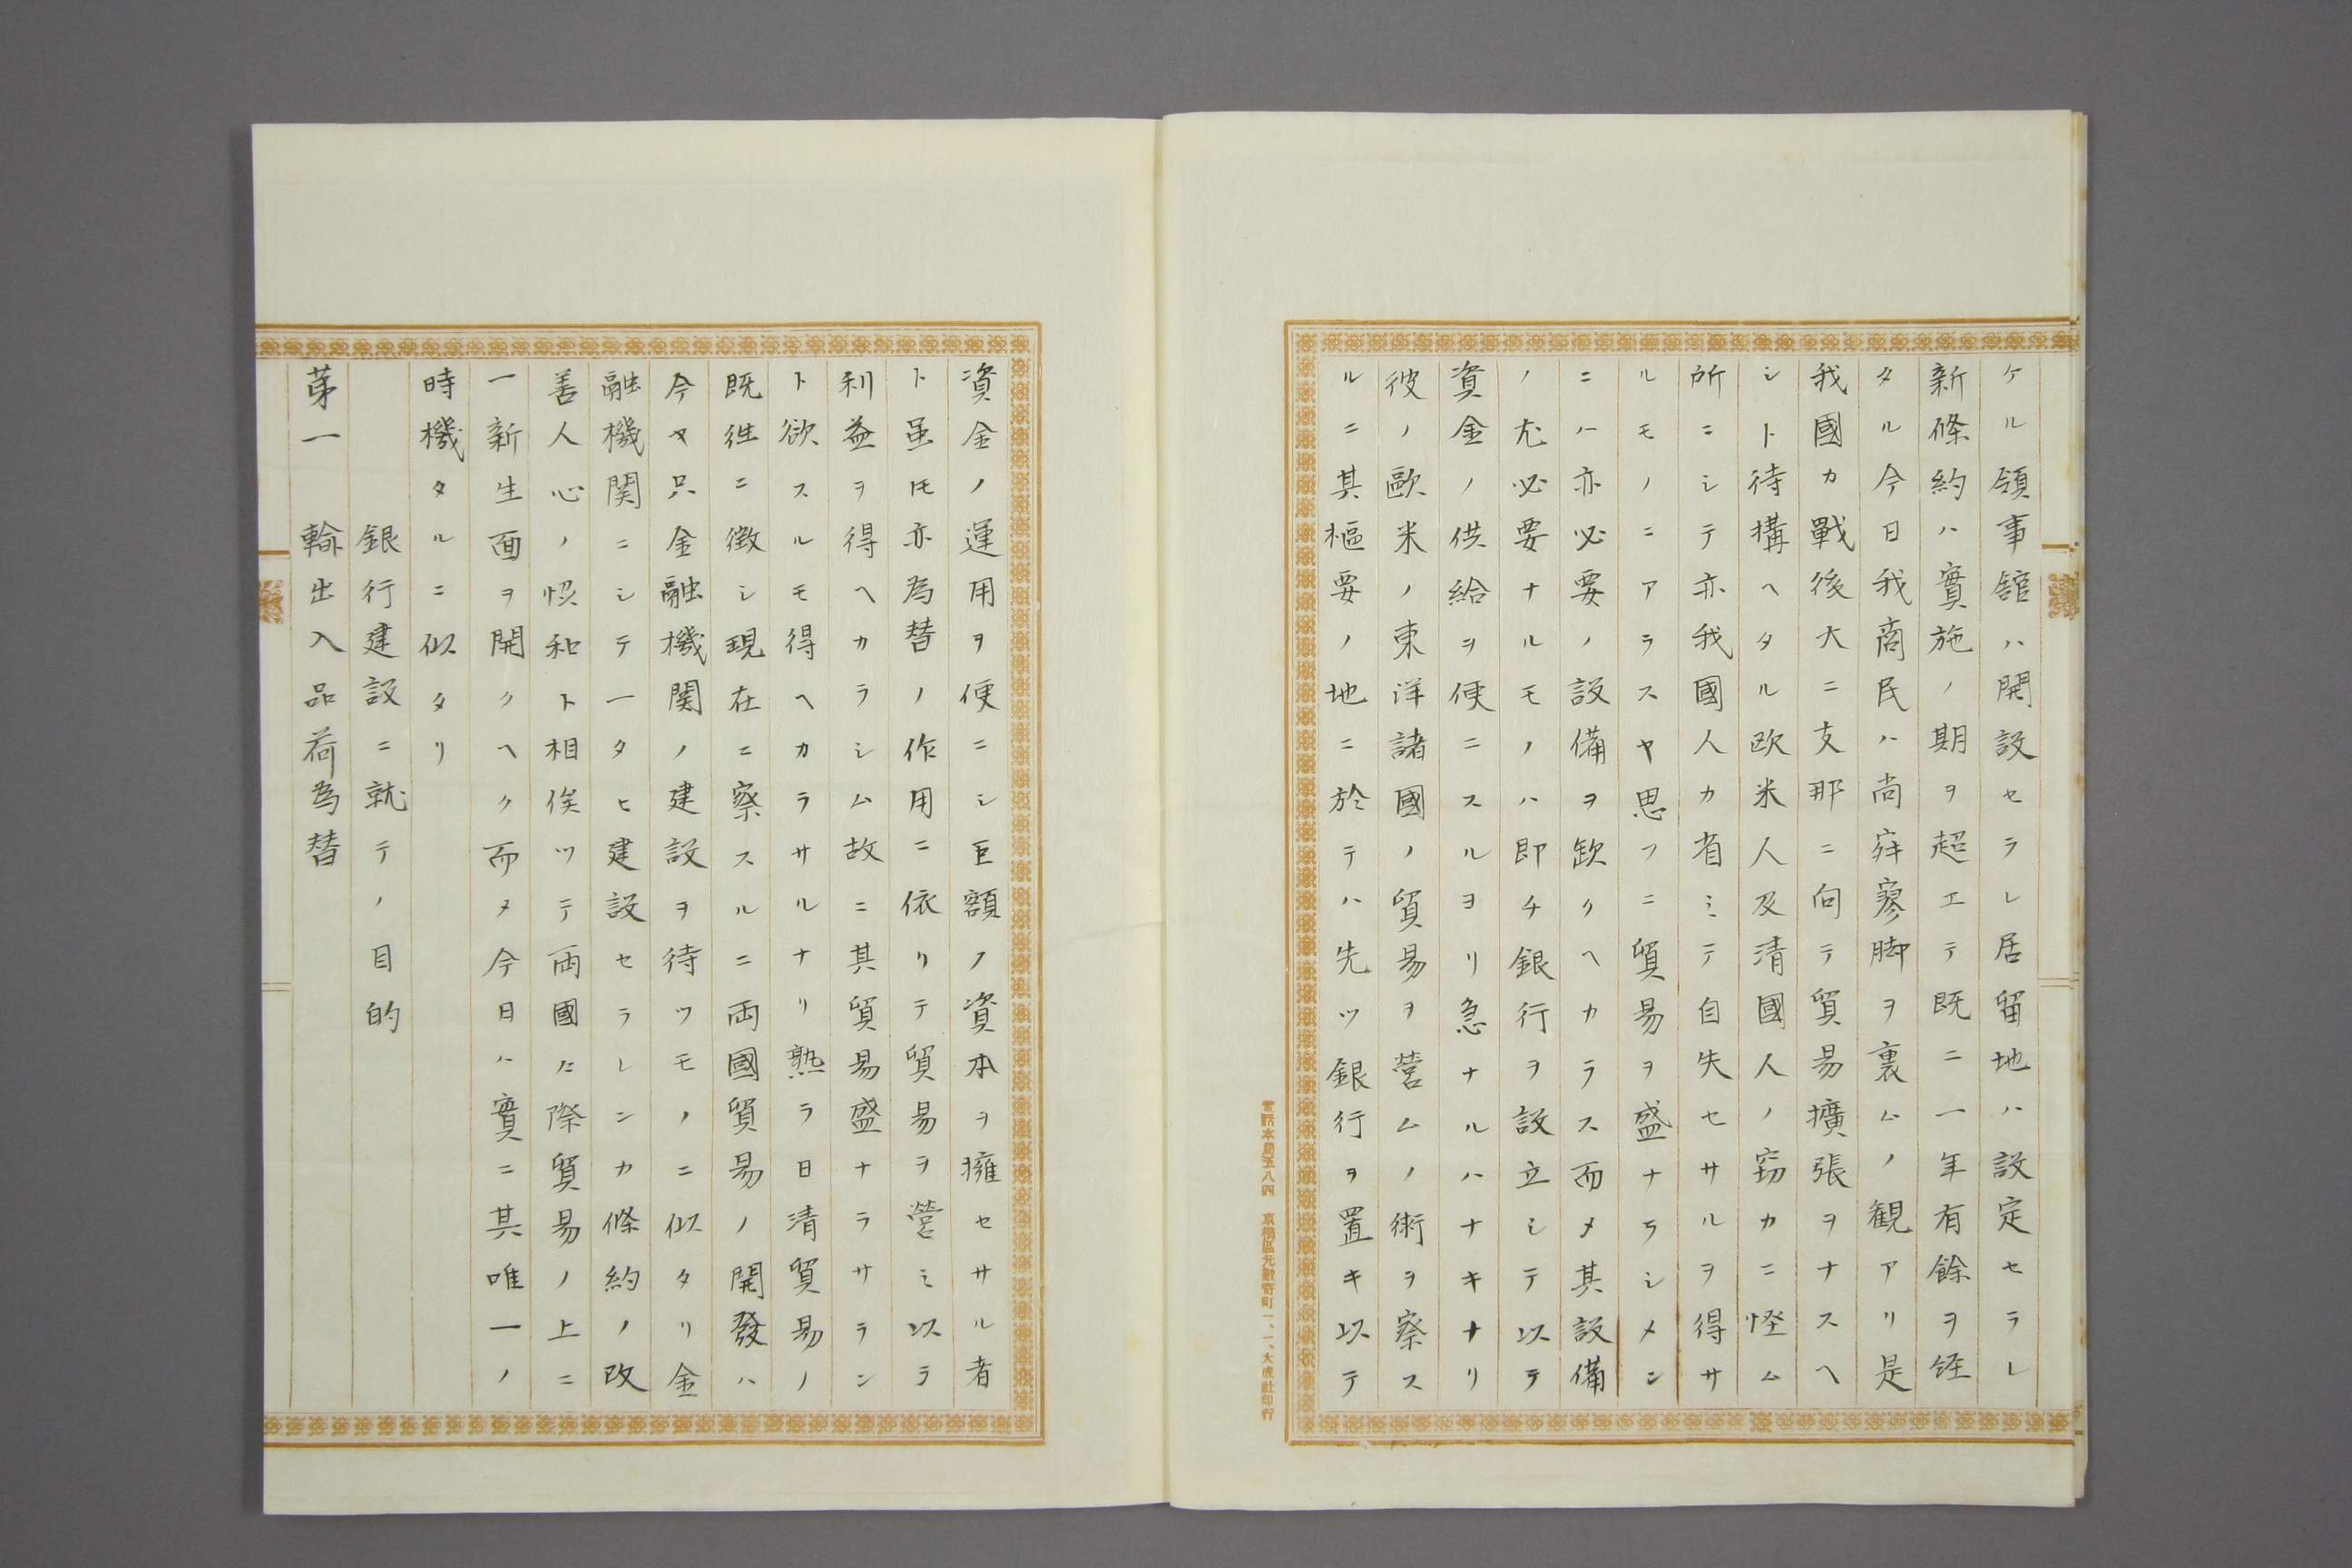 ケル領事舘ハ開設セラレ居留地ハ設定セラレ
新條約ハ實施ノ期ヲ超エテ既ニ一年有餘ヲ経
タル今日我商民ハ尚寂寥脚ヲ裏ムノ観アリ是
我國カ戰後大ニ支那ニ向テ貿易擴張ヲナスヘ
シト待構ヘタル欧米人及清國人ノ窃カニ怪ム
所ニシテ亦我國人カ省ミテ自失セサルヲ得サ
ルモノニアラスヤ思フニ貿易ヲ盛ナラシメン
ニハ亦必要ノ設備ヲ欽クヘカラス而メ其設備
ノ尤必要ナルモノハ即チ銀行ヲ設立シテ以テ
資金ノ供給ヲ便ニスルヨリ急ナルハナキナリ
彼ノ歐米ノ東洋諸國ノ貿易ヲ營ムノ術ヲ察ス
ルニ其樞要ノ地ニ於テハ先ツ銀行ヲ置キ以テ
電話本局五八四 京橋區元數寄町一、一、大成社印行
資金ノ運用ヲ便ニシ巨額ノ資本ヲ擁セサル者
ト虽モ亦為替ノ作用ニ依リテ貿易ヲ營ミ以テ
利益ヲ得ヘカラシム故ニ其貿易盛ナラサラン
ト欲スルモ得ヘカラサルナリ熟ラ日清貿易ノ
既往ニ徴シ現在ニ察スルニ両國貿易ノ開發ハ
今ヤ只金融機関ノ建設ヲ待ツモノニ似タリ金
融機関ニシテ一タヒ建設セラレンカ條約ノ改
善人心ノ悮和ト相俟ツテ両國ノ際貿易ノ上ニ
一新生面ヲ開クヘク而メ今日ハ實ニ其唯一ノ
時機タルニ似タリ
銀行建設ニ就テノ目的
苐一 輸出入品荷為替